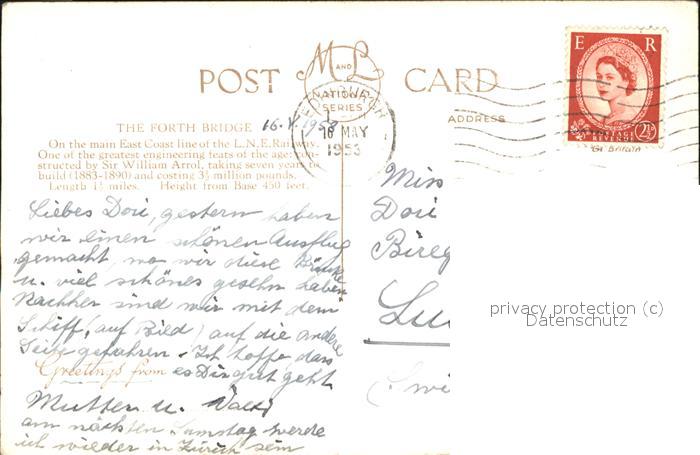 POST M AND L CARD
NATIONAL
SERIES
E R
2½
POSTAGE
REVENUE
Gt Britain
EDINBURGH
16 MAY
1953
ADDRESS
THE FORTH BRIDGE 16.V.1953
On the main East Coast line of the L.N.E. Railway.
One of the greatest engineering feats of the age: con-
structed by Sir William Arrol, taking seven years to
build (1883-1890) and costing 3½ million pounds.
Length 1½ miles. Height from Base 450 feet.
Liebes Dori, gestern haben
wir einen schönen Ausflug
gemacht, wo wir diese Brücke
u. viel schönes gesehn haben
Nachher sind wir mit dem
Schiff, (auf Bild) auf die andere
Seite gefahren. Ich hoffe dass
Greetings from es Dir gut geht.
Mutter u.
am nächsten Samstag werde
ich wieder in Zürich sein
Miss
Dori
Bireg
Lu
(Swi
privacy protection (c)
Datenschutz